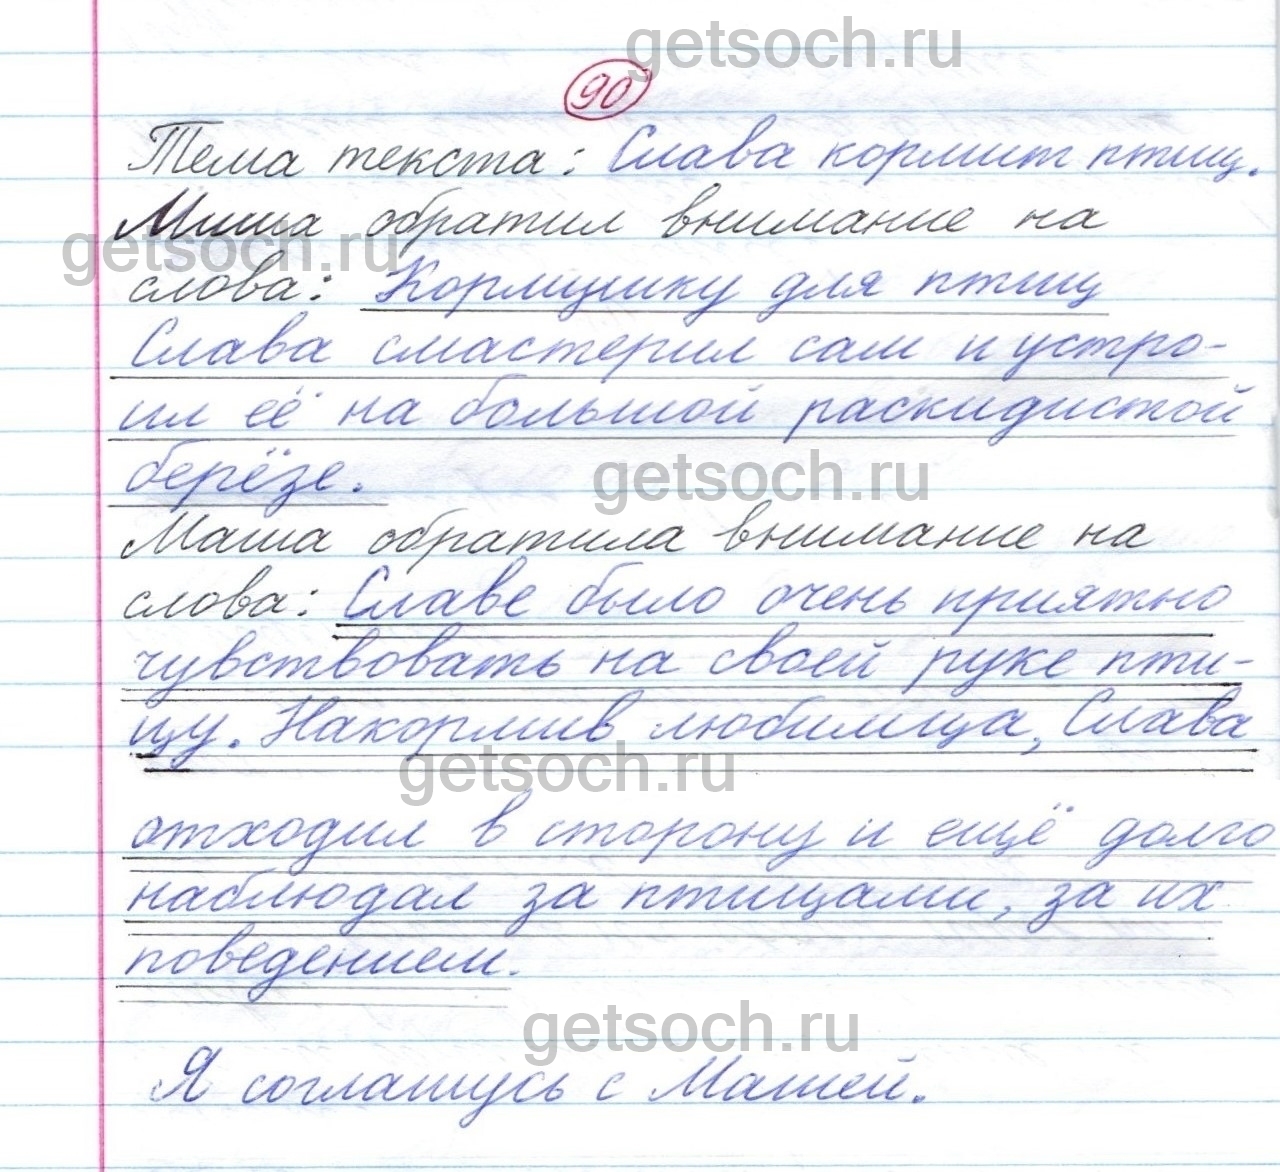 getsoch.ru
90
Тема текста: Слава кормит птиц.
Миша обратил внимание на
getsoch.ru
слова: Кормушку для птиц
Слава смастерил сам и устро-
ил её на большой раскидистой
берёзе.
getsoch.ru
Маша обратила внимание на
слова: Славе было очень приятно
чувствовать на своей руке пти-
цу. Накормив любимца, Слава
getsoch.ru
отходил в сторону и ещё долго
наблюдал за птицами, за их
поведением.
getsoch.ru
Я соглашусь с Машей.